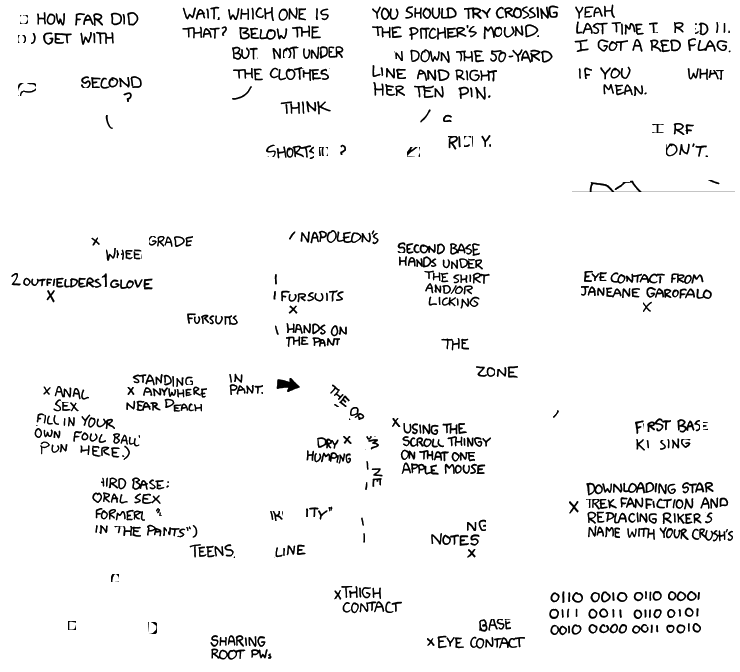 HOW FAR DID
GET WITH
SECOND
?
WAIT, WHICH ONE IS
THAT? BELOW THE
BUT NOT UNDER
THE CLOTHES
THINK
SHORTS ?
YOU SHOULD TRY CROSSING
THE PITCHER'S MOUND.
DOWN THE 50-YARD
LINE AND RIGHT
HER TEN PIN.
YEAH
LAST TIME
I GOT A RED FLAG.
IF YOU WHAT
MEAN.
I
ON'T.
x GRADE
2 OUTFIELDERS 1 GLOVE
x
FURSUITS
NAPOLEON'S
FURSUITS
x
HANDS ON
THE PANT
SECOND BASE
HANDS UNDER
THE SHIRT
AND/OR
LICKING
THE
ZONE
EYE CONTACT FROM
JANEANE GAROFALO
x
x ANAL
SEX
FILL IN YOUR
OWN FOUL BALL
PUN HERE.)
STANDING
x ANYWHERE
NEAR
IN
PANT.
THE
DRY x
HUMPING
x USING THE
SCROLL THINGY
ON THAT ONE
APPLE MOUSE
FIRST BASE
KI SING
HIRD BASE:
ORAL SEX
FORMERL
IN THE PANTS")
ITY"
TEENS LINE
NG
NOTES
x
x DOWNLOADING STAR
TREK FANFICTION AND
REPLACING RIKER S
NAME WITH YOUR CRUSH'S
x THIGH
CONTACT
BASE
x EYE CONTACT
SHARING
ROOT PWs
0110 0010 0110 0001
0111 0011 0110 0101
0010 0000 0011 0010